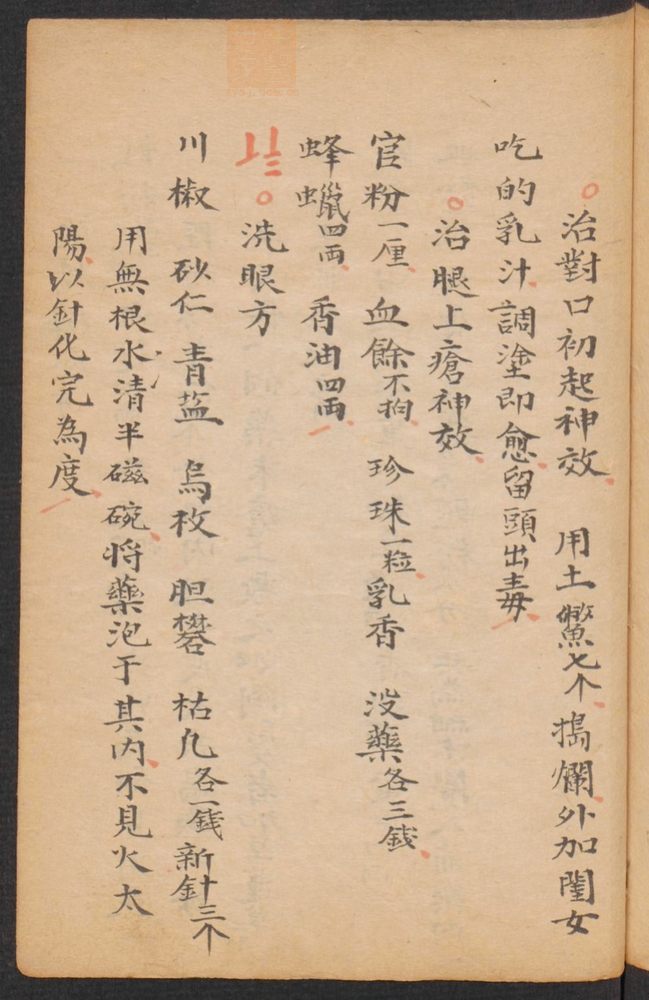 治對口初起神效 用土鱉七个搗爛外加閨女
吃的乳汁調塗即愈留頭出毒
治腿上瘡神效
官粉一厘 血餘不拘 珍珠一粒 乳香 没藥各三錢
蜂蠟四両 香油四両
洗眼方
川椒 砂仁 青盐 烏枚 胆礬 枯凡各一錢 新針三个
用無根水清半磁碗将藥泡于其内不見火太
陽以針化完為度